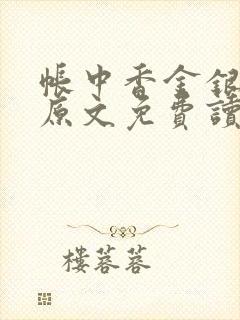 帳中香金銀
原文免費讀
樓蓉蓉